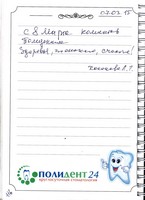 07.03.15
С 8 Марта. коллектив
Полидента
Здоровья, счастья!
ПОЛИДЕНТ 24
круглосуточная стоматология